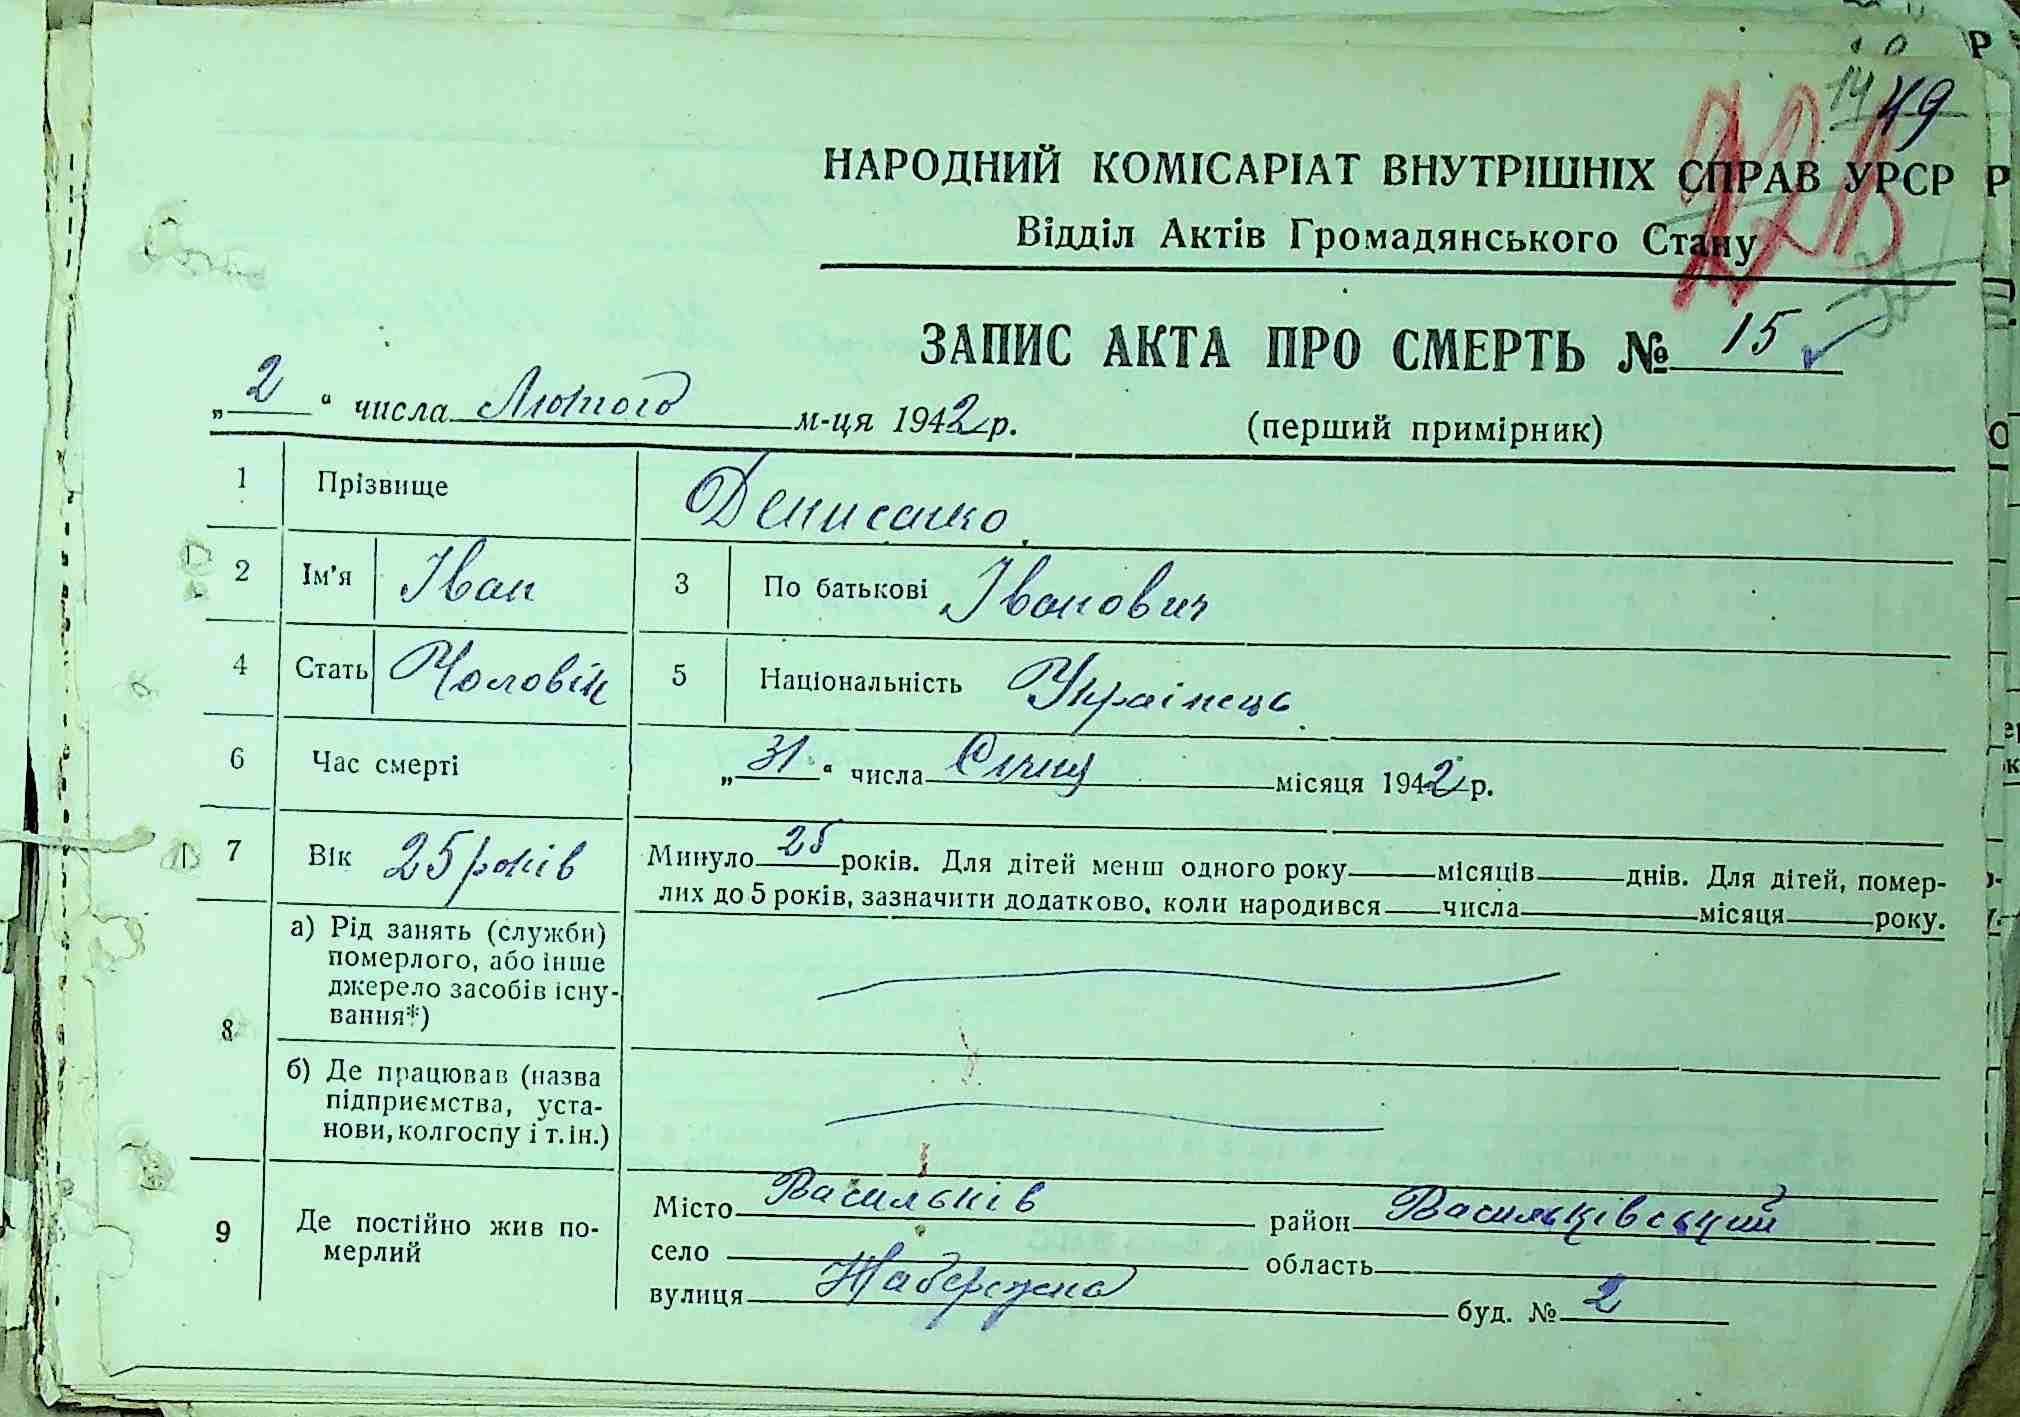 14 49
НАРОДНИЙ КОМІСАРІАТ ВНУТРІШНІХ СПРАВ УРСР
Відділ Актів Громадянського Стану
ЗАПИС АКТА ПРО СМЕРТЬ № 15
„2“ числа Лютого м-ця 1942 р. (перший примірник)
1 Прізвище Денисенко
2 Ім'я Іван 3 По батькові Іванович
4 Стать Чоловік 5 Національність Українець
6 Час смерті „31“ числа Січня місяця 1942 р.
7 Вік 25 років Минуло 25 років. Для дітей менш одного року місяців днів. Для дітей, помер-
лих до 5 років, зазначити додатково, коли народився числа місяця року.
8 а) Рід занять (служби)
померлого, або інше
джерело засобів існу-
вання*)
б) Де працював (назва
підприємства, уста-
нови, колгоспу і т. ін.)
9 Де постійно жив по-
мерлий
Місто Васильків район Васильківський
село область
вулиця Набережна буд. № 2